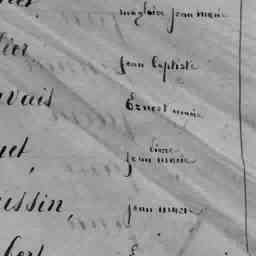 magloire jean marie
lier
jean baptiste
vais
Ernest marie
uet,
pierre
jean marie
ussin,
jean marie
bert